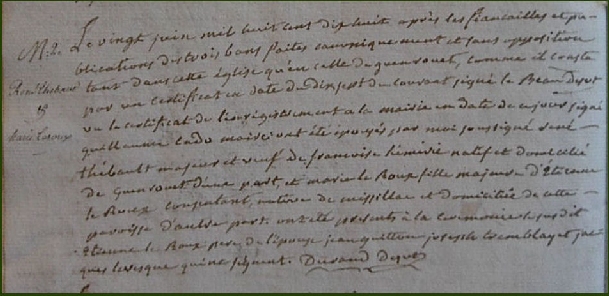 Le vingt juin mil huit cent dix huit après les fiancailles et pu-
blications des trois bans faites canoniquement et sans opposition
tant dans cette église qu'en celle de guenrouet, comme il conste
par un certificat en date du dix sept du courant signé le Beau
vu le certificat de l'enregistrement à la mairie en date de ce jour signé
guillaume maire ont été par moi soussigné rené
thébault majeur et veuf de francoise hémerié natif et domicilié
de Guenrouet d'une part, et marie le Roux fille majeure d'Etienne
le Roux consentant, native de missillac et domiciliée de cette
paroisse d'autre part. ont été présents à la ceremonie le susdit
etienne le Roux pere de l'épouse jean joseph tremblay et jac-
ques levesque qui ne signent. Durand
M. 2e
René thébaud
&
marie Leroux